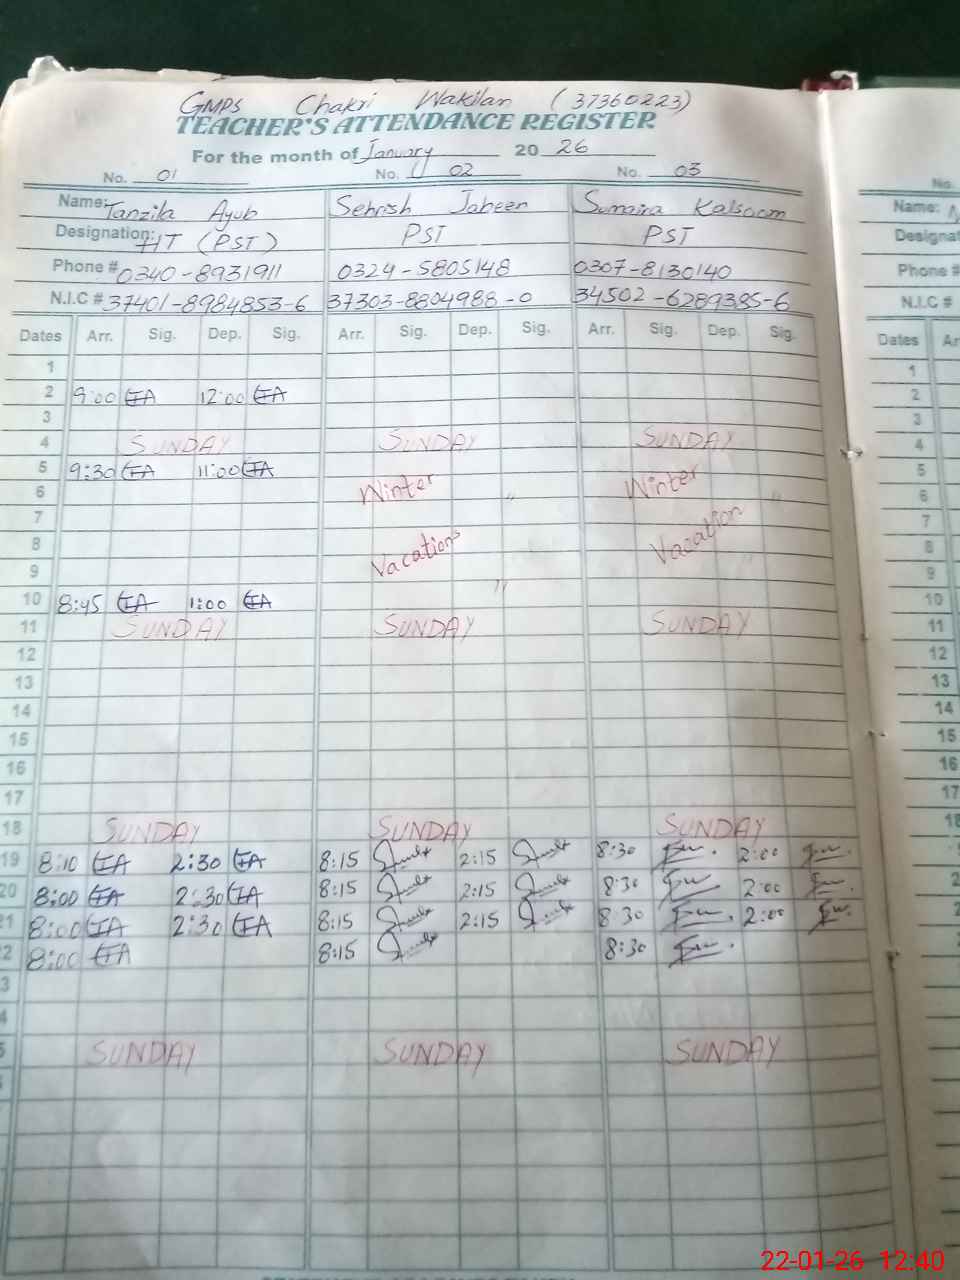 GMPS Chakri Wakilan (37360223)
TEACHER'S ATTENDANCE REGISTER
For the month of January 2026
No. 01 No. 02 No. 03 No.
Name: Tanzila Ayub Sehrish Jabeen Sumaira Kalsoom Name:
Designation: HT (PST) PST PST Designat
Phone # 0340-8931911 0324-5805148 0307-8130140 Phone #
N.I.C # 37401-8984853-6 37303-8804988-0 34502-6289385-6 N.I.C #
Dates Arr. Sig. Dep. Sig. Arr. Sig. Dep. Sig. Arr. Sig. Dep. Sig. Dates Ar
1 1
2 9:00 TA 12:00 TA 2
3 3
4 SUNDAY SUNDAY SUNDAY 4
5 9:30 TA 11:00 TA 5
6 Winter " Winter " 6
7 7
8 Vacations Vacation 8
9 9
10 8:45 TA 1:00 TA " 10
11 SUNDAY SUNDAY SUNDAY 11
12 12
13 13
14 14
15 15
16 16
17 17
18 SUNDAY SUNDAY SUNDAY 18
19 8:10 TA 2:30 TA 8:15 2:15 8:30 2:00
20 8:00 TA 2:30 TA 8:15 2:15 8:30 2:00
21 8:00 TA 2:30 TA 8:15 2:15 8:30 2:00
2 8:00 TA 8:15 8:30
3
4
5 SUNDAY SUNDAY SUNDAY
22-01-26 12:40